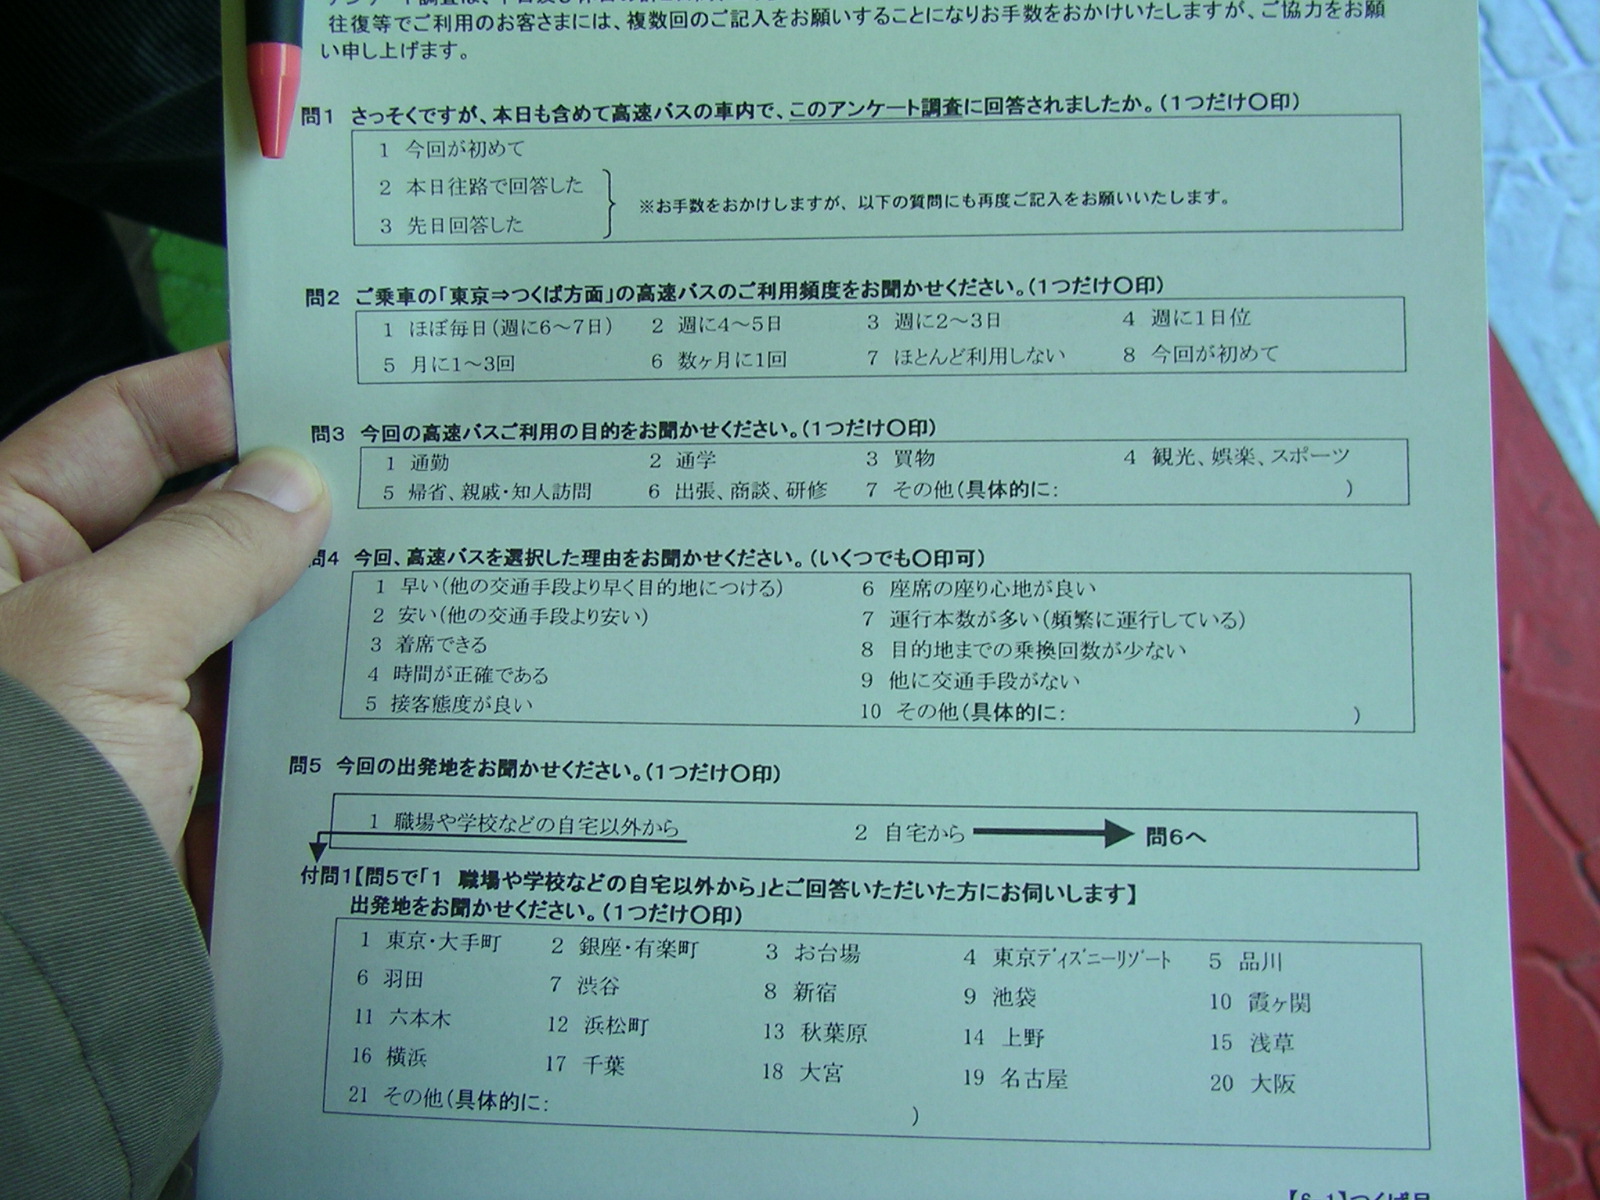 往復等でご利用のお客さまには、複数回のご記入をお願いすることになりお手数をおかけいたしますが、ご協力をお願
い申し上げます。
問1 さっそくですが、本日も含めて高速バスの車内で、このアンケート調査に回答されましたか。(1つだけ〇印)
1 今回が初めて
2 本日往路で回答した
3 先日回答した
※お手数をおかけしますが、以下の質問にも再度ご記入をお願いいたします。
問2 ご乗車の「東京⇒つくば方面」の高速バスのご利用頻度をお聞かせください。(1つだけ〇印)
1 ほぼ毎日(週に6～7日) 2 週に4～5日 3 週に2～3日 4 週に1日位
5 月に1～3回 6 数ヶ月に1回 7 ほとんど利用しない 8 今回が初めて
問3 今回の高速バスご利用の目的をお聞かせください。(1つだけ〇印)
1 通勤 2 通学 3 買物 4 観光、娯楽、スポーツ
5 帰省、親戚・知人訪問 6 出張、商談、研修 7 その他(具体的に: )
問4 今回、高速バスを選択した理由をお聞かせください。(いくつでも〇印可)
1 早い(他の交通手段より早く目的地につける) 6 座席の座り心地が良い
2 安い(他の交通手段より安い) 7 運行本数が多い(頻繁に運行している)
3 着席できる 8 目的地までの乗換回数が少ない
4 時間が正確である 9 他に交通手段がない
5 接客態度が良い 10 その他(具体的に: )
問5 今回の出発地をお聞かせください。(1つだけ〇印)
1 職場や学校などの自宅以外から 2 自宅から 問6へ
付問1【問5で「1 職場や学校などの自宅以外から」とご回答いただいた方にお伺いします】
出発地をお聞かせください。(1つだけ〇印)
1 東京・大手町 2 銀座・有楽町 3 お台場 4 東京ディズニーリゾート 5 品川
6 羽田 7 渋谷 8 新宿 9 池袋 10 霞ヶ関
11 六本木 12 浜松町 13 秋葉原 14 上野 15 浅草
16 横浜 17 千葉 18 大宮 19 名古屋 20 大阪
21 その他(具体的に: )